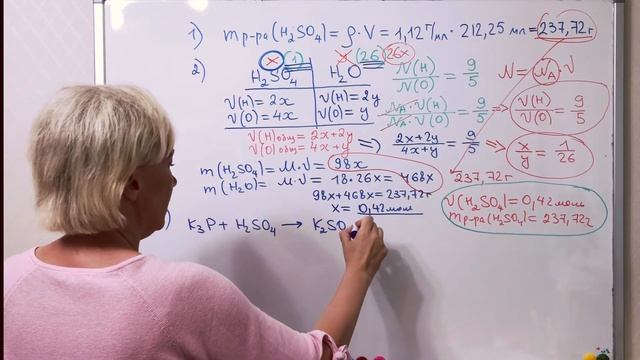 1) m р-ра (H₂SO₄) = ρ · V = 1,12 г/мл · 212,25 мл = 237,72 г
2) x (1) y (26) 26x
H₂SO₄ H₂O N(H)/N(O) = 9/5 N = N_A · ν
ν(H) = 2x ν(H) = 2y N_A · ν(H)/N_A · ν(O) = 9/5 ⇒ ν(H)/ν(O) = 9/5
ν(O) = 4x ν(O) = y
ν(H) общ = 2x + 2y
ν(O) общ = 4x + y ⇒ 2x + 2y/4x + y = 9/5 ⇒ x/y = 1/26
m(H₂SO₄) = M · ν = 98x
m(H₂O) = M · ν = 18 · 26x = 468x 237,72 г
98x + 468x = 237,72 г
x = 0,42 моль
ν(H₂SO₄) = 0,42 моль
m р-ра (H₂SO₄) = 237,72 г
) K₃P + H₂SO₄ → K₂SO